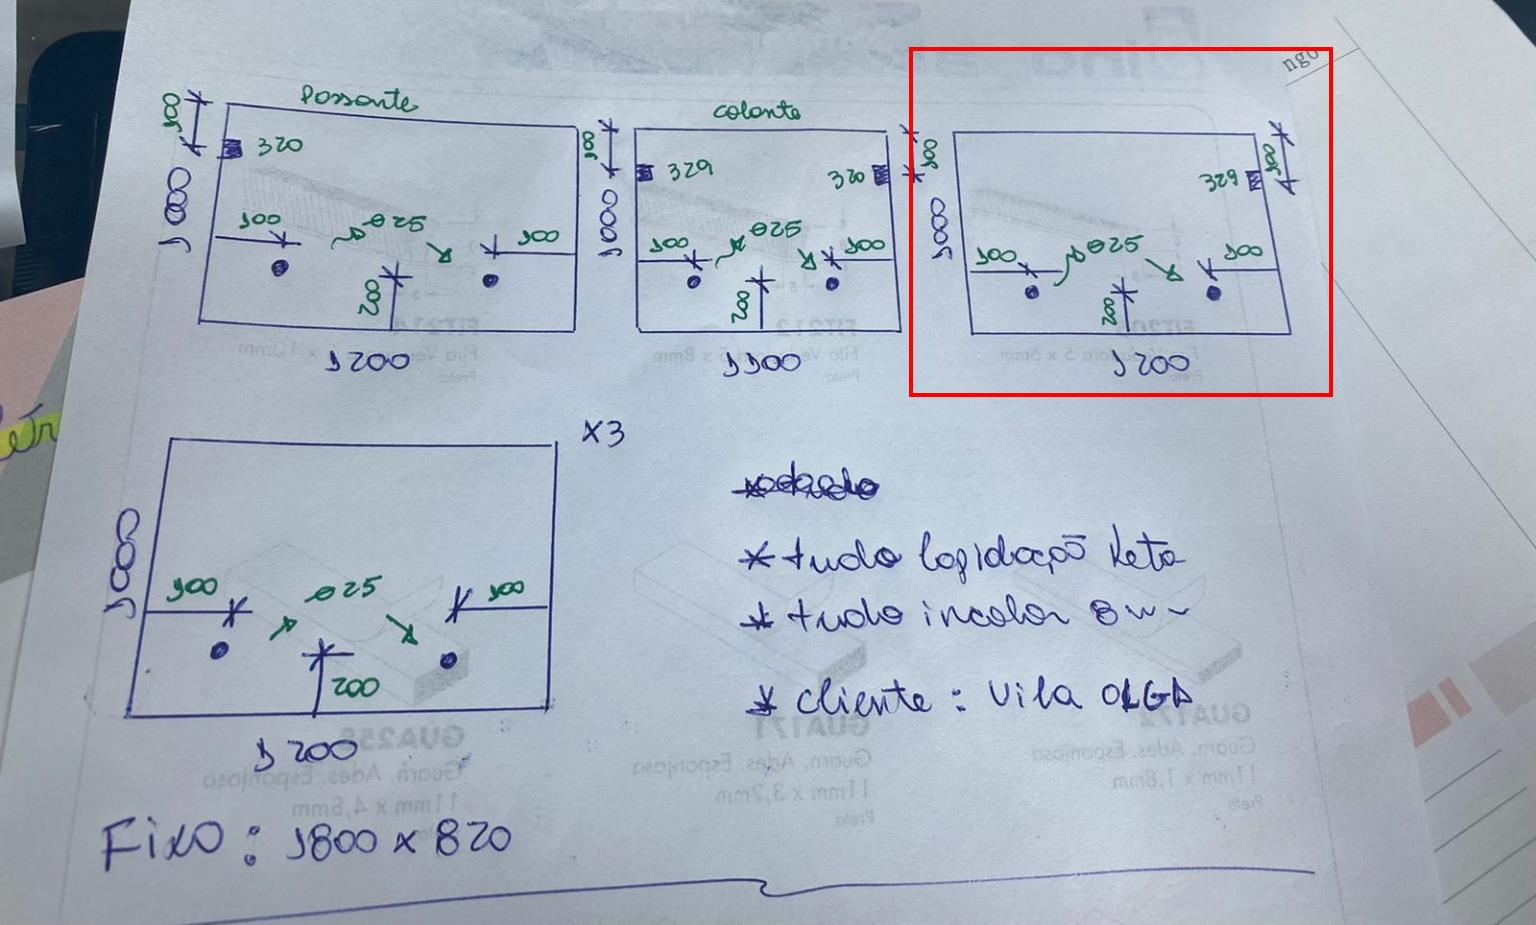 ngo
Passante
colante
100 320
100 329 320 100
100 329 100
1000
1000
1000
100 ø25 100
100 ø25 100
100 ø25 100
200
200
200
1200
1100
1200
x3
1000
100 ø25 100
200
1200
* tudo lapidação Reta
* tudo incolor 8mm
* cliente: Vila OLGA
Fixo: 1800 x 820